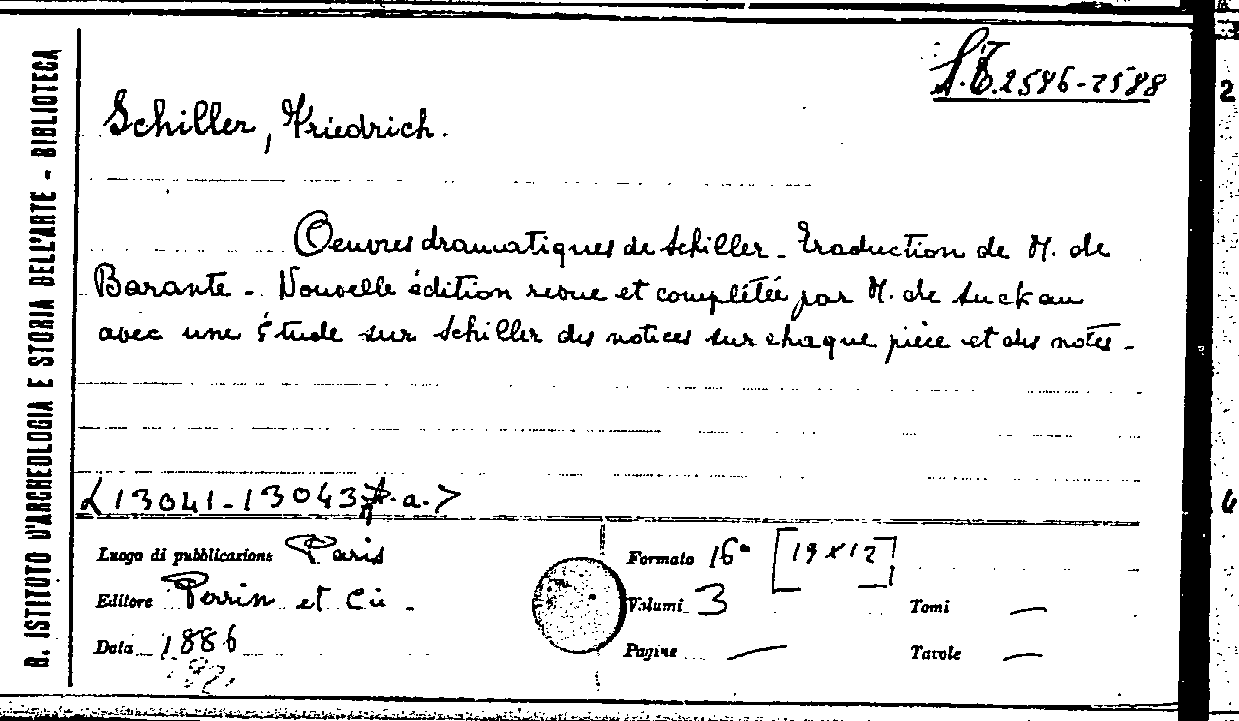 R. ISTITUTO D'ARCHEOLOGIA E STORIA DELL'ARTE - BIBLIOTECA
S.T. 2586-2588
Schiller, Friedrich.
Oeuvres dramatiques de Schiller - Traduction de M. de
Barante - Nouvelle édition revue et complétée par M. de Suckau
avec une étude sur Schiller des notices sur chaque pièce et des notes -
<13041-13043 a.>
Luogo di pubblicazione Paris
Editore Perrin et Cie.
Data 1886
Formato 16° [19 x 12]
Volumi 3
Tomi —
Pagine —
Tavole —